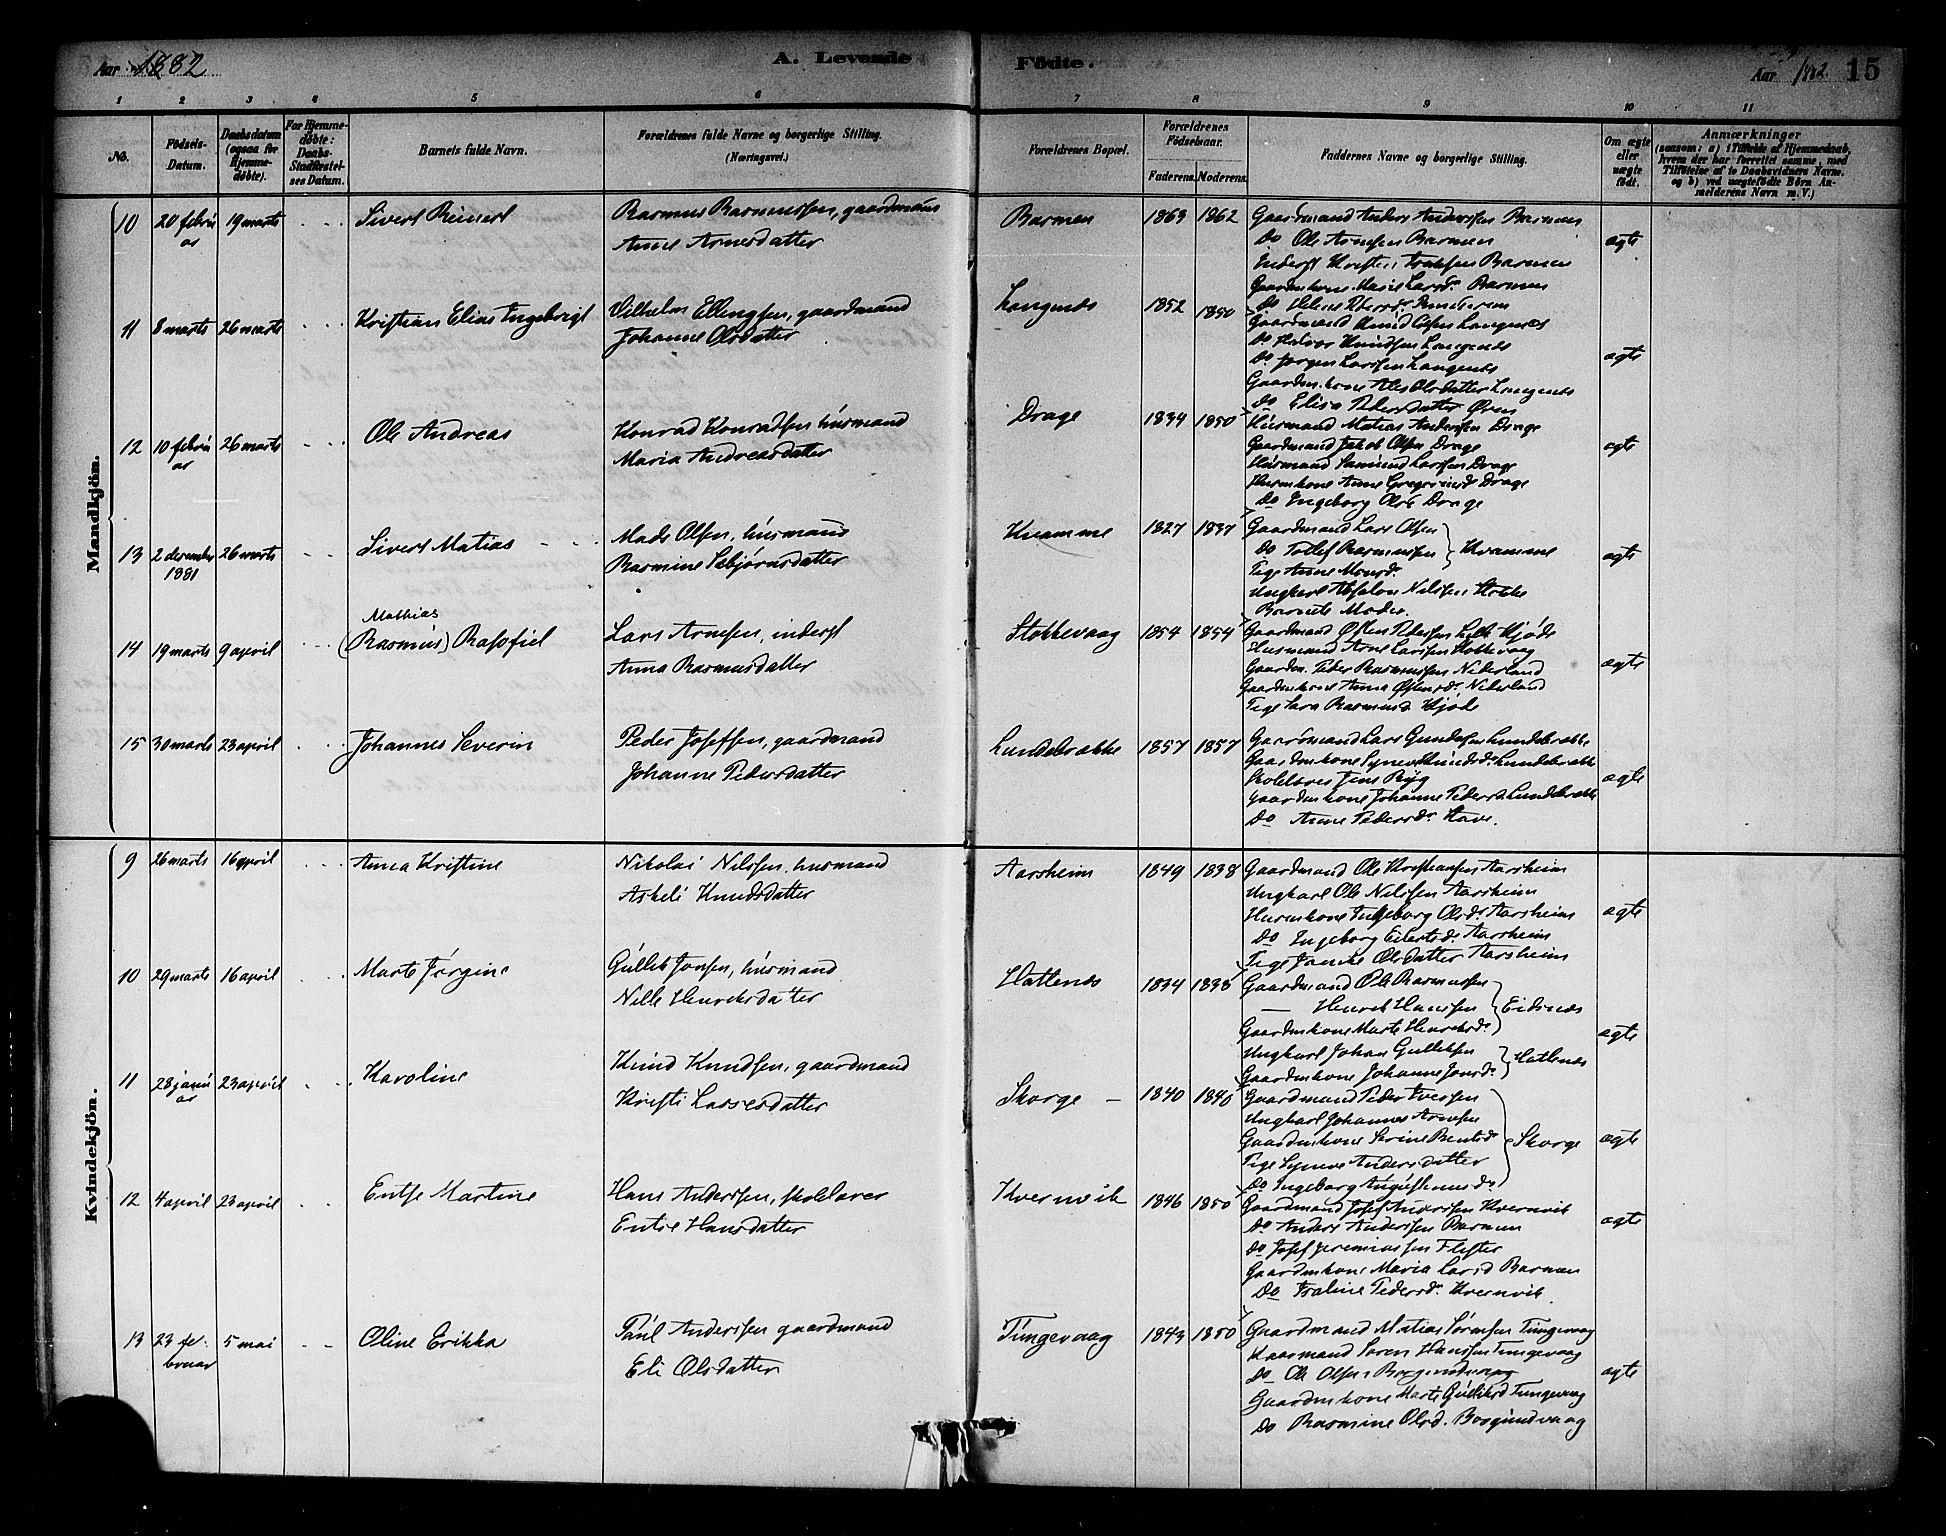 Aar 1882
A. Levende
Fødte.
Aar 1882.
15
1 2 3 4 5 6 7 8 9 10 11
No.
Fødsels-Datum.
Daabsdatum (ogsaa for Hjemmedøbte).
For Hjemmedøbte: Daabs-Stadfæstelses Datum.
Barnets fulde Navn.
Forældrenes fulde Navne og borgerlige Stilling. (Næringsvei.)
Forældrenes Bopæl.
Forældrenes Fødselsaar.
Faderens. Moderens.
Faddernes Navne og borgerlige Stilling.
Om ægte eller uægte født.
Anmærkninger
(saasom: a) i Tilfælde af Hjemmedaab, hvem der har forrettet samme, med Tilføielse af to Daabsvidners Navne. og b) ved uægtefødte Børn Anmelderens Navn m. V.)
Mandkjön.
10 20 februar 19 marts Sivert Reinert
Rasmus Rasmussen, gaardmand
Anne Arnesdatter
Barmen 1863 1862
Gaardmand Anders Anderssen Barmen
Do Ole Arnesen Barmen
Inderst Barmen
Gaardmkone Marie Larsd. Barmen
Do Helene
ægte
11 8 marts 26 marts Kristian Elias Ingebrigt
Vilhelm Ellingsen, gaardmand
Johanne Olsdatter
Langenæs 1852 1850
Gaardmand Knud Olsen Langenæs
Do Halvor Knudsen Langenæs
Do Jørgen Larssen Langenæs
Gaardm.kone Ales Olsdatter Langenæs
Do Elisa Pedersdatter Øren
ægte
12 10 februar 26 marts Ole Andreas
Konrad Konradsen húsmand
Maria Andreasdatter
Drage 1834 1850
Húsmand Matias Andersen Drage
Gaardmand Jakob Olsen Drage
Húsmand Samund Larsen Drage
Husmkone Anne Gregoriusd. Drage
Do Ingeborg Olsd. Drage
ægte
13 2 december 1881 26 marts Sivert Matias
Mads Olsen, húsmand
Rasmine Sebjørnsdatter
Kvamme 1827 1837
Gaardmand Lars Olsen
Do Tollef Rasmussen
Pige Anne Monsd.
Kvamme
Ungkarl Absalon Nilssen Stokke
Barnets Moder.
ægte
14 19 marts 9 april Mathias
(Rasmús) Rasofiel
Lars Arnesen, inderst
Anna Rasmusdatter
Stokkevaag 1854 1854
Gaardmand Østen Pedersen Hjøde
Husmand Arne Larssen Stokkevaag
Gaardm. Peder Rasmussen Nederland
Gaardmkone Anna Østensd. Nederland
Pige Sara Rasmusd. Hjøde
ægte
15 30 marts 23 april Johannes Severin
Peder Josefsen, gaardmand
Johanne Pedersdatter
Lundebrække 1857 1857
Gaardmand Lars Lundebrække
Gaardmkone Synev Knudsd. Lundebrække
Skolelærer Jens Ryg
Gaardmkone Johanne Pedersd. Lundebrække
Do Anne Pedersd. Have.
ægte
Kvindekjön.
9 26 marts 16 april Anna Kristine
Nikolai Nilssen, husmand
Askeli Knudsdatter
Aarsheim 1849 1838
Gaardmand Ole Kristiansen Aarsheim
Ungkarl Ole Nilssen Aarsheim
Husmkone Ingeborg Olsd. Aarsheim
Do Ingeborg Eilertsd. Aarsheim
Pige Janike Olsdatter Aarsheim
ægte
10 29 marts 16 april Marte Jørgine
Gullik Jonsen, húsmand
Nille Henriksdatter
Hatlenæs 1834 1838
Gaardmand Ole Rasmussen
— Henrik Hanssen
Gaardmkone Marte Henriksd.
Eidsnæs
Ungkarl Johan Gulliksen
Gaardmkone Johanne Jonsd.
Hatlenæs
ægte
11 28 januar 23 april Karoline
Knúd Knudsen, gaardmand
Kristi Larsesdatter
Skorge 1840 1840
Gaardmand Peder Iversen
Ungkarl Johannes Arnesen
Gaardmkone Serine Bentsd.
Pige Synneve Andersdatter
Do Ingeborg Augústinusd.
Skorge
ægte
12 4 april 23 april Entse Martine
Hans Anderssen, skolelærer
Entse Hansdatter
Kvernvik 1846 1850
Gaardmand Josef Anderssen Kvernvik
Do Anders Anderssen Barmen
Do Josef Jeremiassen Flister
Gaardmkone Maria Larsd. Barmen
Do Iraline Pedersd. Kvernvik
ægte
13 23 februar 5 mai Oline Erikka
Pául Anderssen gaardmand
Eli Olsdatter
Tungevaag 1843 1850
Gaardmand Matias Sørensen Tungevaag
Kaarmand Søren Hanssen Tungevaag
Do Ole Olsen Borgundvaag
Gaardmkone Marte Gulliksd Tungevaag
Do Rasmine Olsd. Borgundvaag
ægte